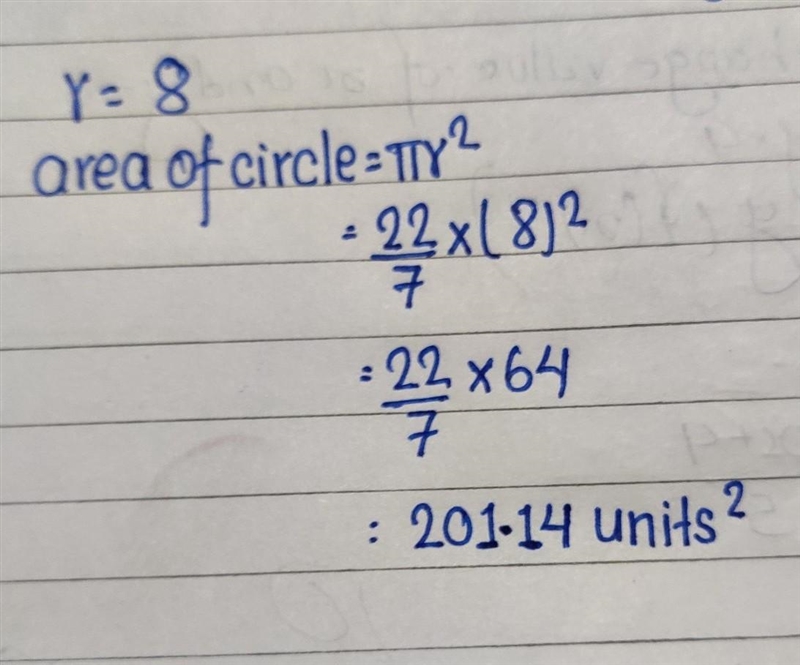 r= 8
area of circle=πr²
= 22/7 x(8)²
= 22/7 x64
: 201.14 units²